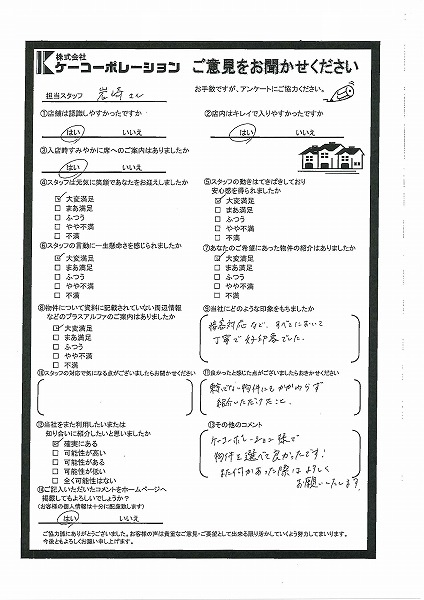 株式会社
ケーコーポレーション ご意見をお聞かせください
担当スタッフ 岩崎さん
お手数ですが、アンケートにご協力ください。
①店舗は認識しやすかったですか
はい いいえ
②店内はキレイで入りやすかったですか
はい いいえ
③入店時すみやかに席へのご案内はありましたか
はい いいえ
④スタッフは元気に笑顔であなたをお迎えしましたか
☑ 大変満足
□ まあ満足
□ ふつう
□ やや不満
□ 不満
⑤スタッフの動きはてきぱきしており
安心感を得られましたか
☑ 大変満足
□ まあ満足
□ ふつう
□ やや不満
□ 不満
⑥スタッフの言動に一生懸命さを感じられましたか
☑ 大変満足
□ まあ満足
□ ふつう
□ やや不満
□ 不満
⑦あなたのご希望にあった物件の紹介はありましたか
☑ 大変満足
□ まあ満足
□ ふつう
□ やや不満
□ 不満
⑧物件について資料に記載されていない周辺情報
などのプラスアルファのご案内はありましたか
☑ 大変満足
□ まあ満足
□ ふつう
□ やや不満
□ 不満
⑨当社にどのような印象をもちましたか
接客対応など、すべてにおいて
丁寧で好印象でした。
⑩スタッフの対応で気になる点がございましたらお聞かせください
⑪良かったと感じた点がございましたらおきかせください
物件にもかかわらず
紹介いただけたこと。
⑫当社をまた利用したいまたは
知り合いに紹介したいと思いましたか
☑ 確実にある
□ 可能性が高い
□ 可能性がある
□ 可能性が低い
□ 全く可能性はない
⑬その他のコメント
ケーコーポレーション様で
物件を選べて良かったです!
また何かあった際はよろしく
お願いいたします。
⑭ご記入いただいたコメントをホームページへ
掲載してもよろしいでしょうか?
(お客様の個人情報は十分に配慮致します)
はい いいえ
ご協力誠にありがとうございました。お客様の声は貴重なご意見・ご要望として出来る限り活かしていくよう努力してまいります。
今後ともよろしくお願い申し上げます。